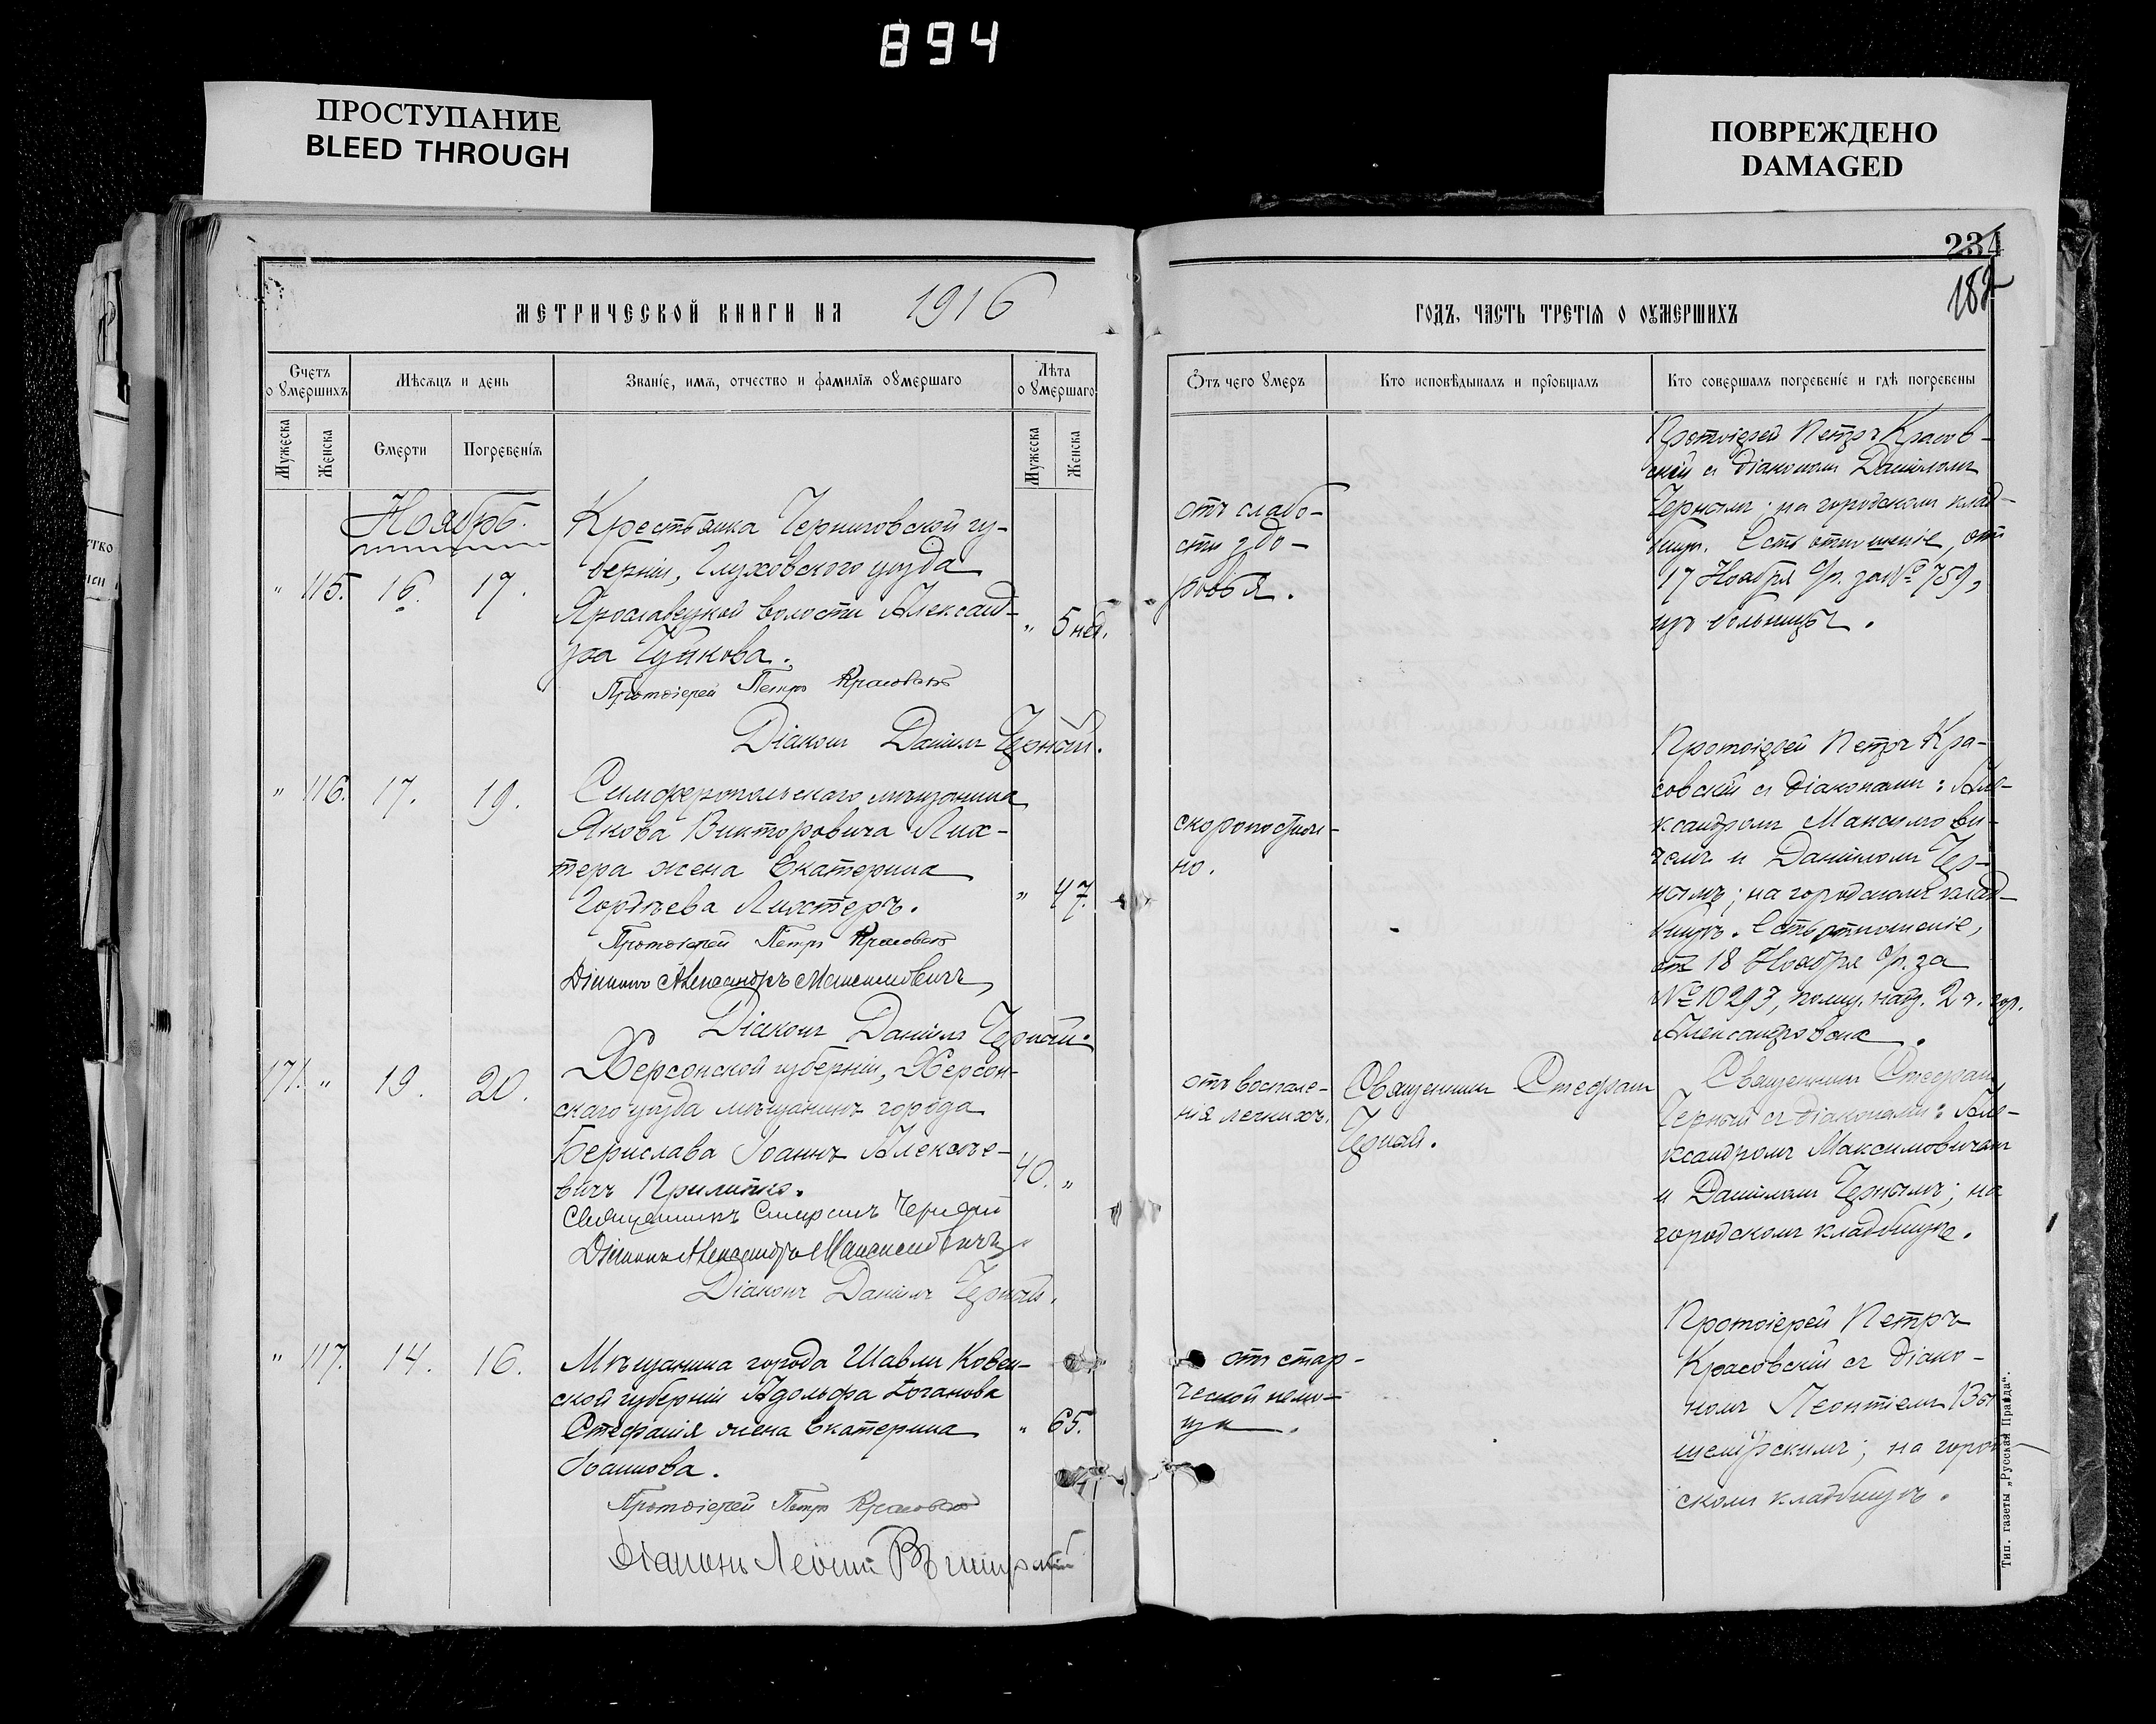 894
ПРОСТУПАНИЕ
BLEED THROUGH
ПОВРЕЖДЕНО
DAMAGED
234
182
МЕТРИЧЕСКОЙ КНИГИ НА 1916
ГОДЪ, ЧАСТЬ ТРЕТІѦ О ОУМЕРШИХЪ
Счетъ о умершихъ
Мѣсѧцъ и день
Званіе, имѧ, отчество и фамиліѧ оумершаго
Лѣта о умершаго
Мужеска
Женска
Смерти
Погребеніѧ
Мужеска
Женска
Отъ чего умеръ
Кто исповѣдывалъ и пріобщалъ
Кто совершалъ погребеніе и гдѣ погребены
Ноябрь.
" 115. 16. 17.
Крестьянка Черниговской гу-
берніи, Глуховского уѣзда
Ярославецкой волости Александ-
ра Чуйкова.
" 5 нед.
Протоіерей Петръ Красовскій
Діаконъ Даніилъ Черный.
отъ слабо-
сти здо-
ровья.
Протоіерей Петръ Красов-
скій съ діакономъ Даніиломъ
Чернымъ; на городскомъ клад-
бищѣ. Есть отношеніе, отъ
17 Ноября с/г. за № 759,
изъ больницы.
" 116. 17. 19.
Симферопольскаго мѣщанина
Якова Викторовича Лих-
тера жена Екатерина
Гордѣева Лихтеръ.
" 47.
Протоіерей Петръ Красовскій
Діаконъ Александръ Максимовичъ
Діаконъ Даніилъ Черный.
скоропостиж-
но.
Протоіерей Петръ Кра-
совскій съ діаконами: Але-
ксандромъ Максимови-
чемъ и Даніиломъ Чер-
нымъ; на городскомъ клад-
бищѣ. Есть отношеніе,
отъ 18 Ноября с/г. за
№ 10293, помощ. надз. 2 ч. гор.
Александровска.
171. " 19. 20.
Херсонской губерніи, Херсон-
скаго уѣзда мѣщанинъ города
Берислава Іоаннъ Алексѣе-
вичъ Прилипко.
40. "
Священникъ Стефанъ Черный
Діаконъ Александръ Максимовичъ
Діаконъ Даніилъ Черный.
отъ воспале-
нія легкихъ.
Священникъ Стефанъ
Черный.
Священникъ Стефанъ
Черный съ діаконами: Але-
ксандромъ Максимовичемъ
и Даніиломъ Чернымъ; на
городскомъ кладбищѣ.
" 117. 14. 16.
Мѣщанина города Шавли Ковен-
ской губерніи Адольфа
Стефанія жена Екатерина
Іоаннова.
" 65.
Протоіерей Петръ Красовскій
Діаконъ
отъ стар-
ческой немо-
щи.
Протоіерей Петръ
Красовскій съ діако-
номъ Леонтіемъ Вы
шемірскимъ; на город-
скомъ кладбищѣ.
Тип. газеты „Русская Правда“.